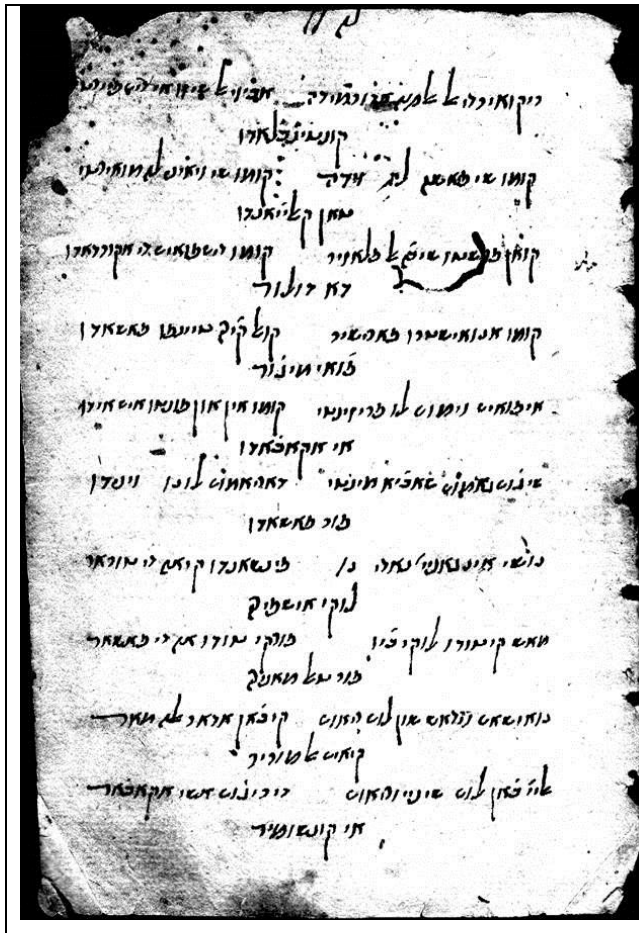 ריקואירדה אל אלמה דורמידה אביוי אל שיזו אי דישפיירטי
קונטינפלאדו
קומו שי פאשה לה וידה קומו שי ויאיני לה מואירטי
טאן קאלייאנדו
קואן פרישטו שי בה אל פלאזיר קומו דישפואיש די אקורדאדו
דא דולור
קומו אנואישטרו פארישיר קולקיר טיינפו פאשאדו
פואי מיז'ור
אי פואיש וימוס לו פריזינטי קומו אין און פונטו איש אידו
אי אקאבאדו
שי ג'וזגאמוס שאביאמינטי דארהאמוס לו נו וינידו
פור פאשאדו
נו שי אינגאנייי נאדי נו פינשאנדו קי אה די טוראר
לו קי אישפירה
מאש קי טורו לו קי ביו פורקי טודו אה די פאשאר
פור טל מאנירה
נואישטראש וידאש שון לוש ריאוש קי באן אדאר אלה מאר
קי איש אל מוריר
אליי באן לוש שינייוריאוש דיריג'וש אשי אקאבאר
אי קונשומיר